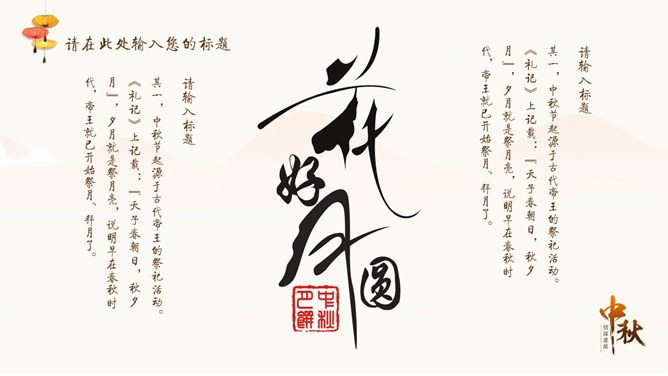 请在此处输入您的标题
请输入标题
其一，中秋节起源于古代帝王的祭祀活动。
《礼记》上记载：“天子春朝日，秋夕
月”，夕月就是祭月亮，说明早在春秋时
代，帝王就已开始祭月、拜月了。
花好月圆
中秋
月饼
请输入标题
其一，中秋节起源于古代帝王的祭祀活动。
《礼记》上记载：“天子春朝日，秋夕
月”，夕月就是祭月亮，说明早在春秋时
代，帝王就已开始祭月、拜月了。
中秋